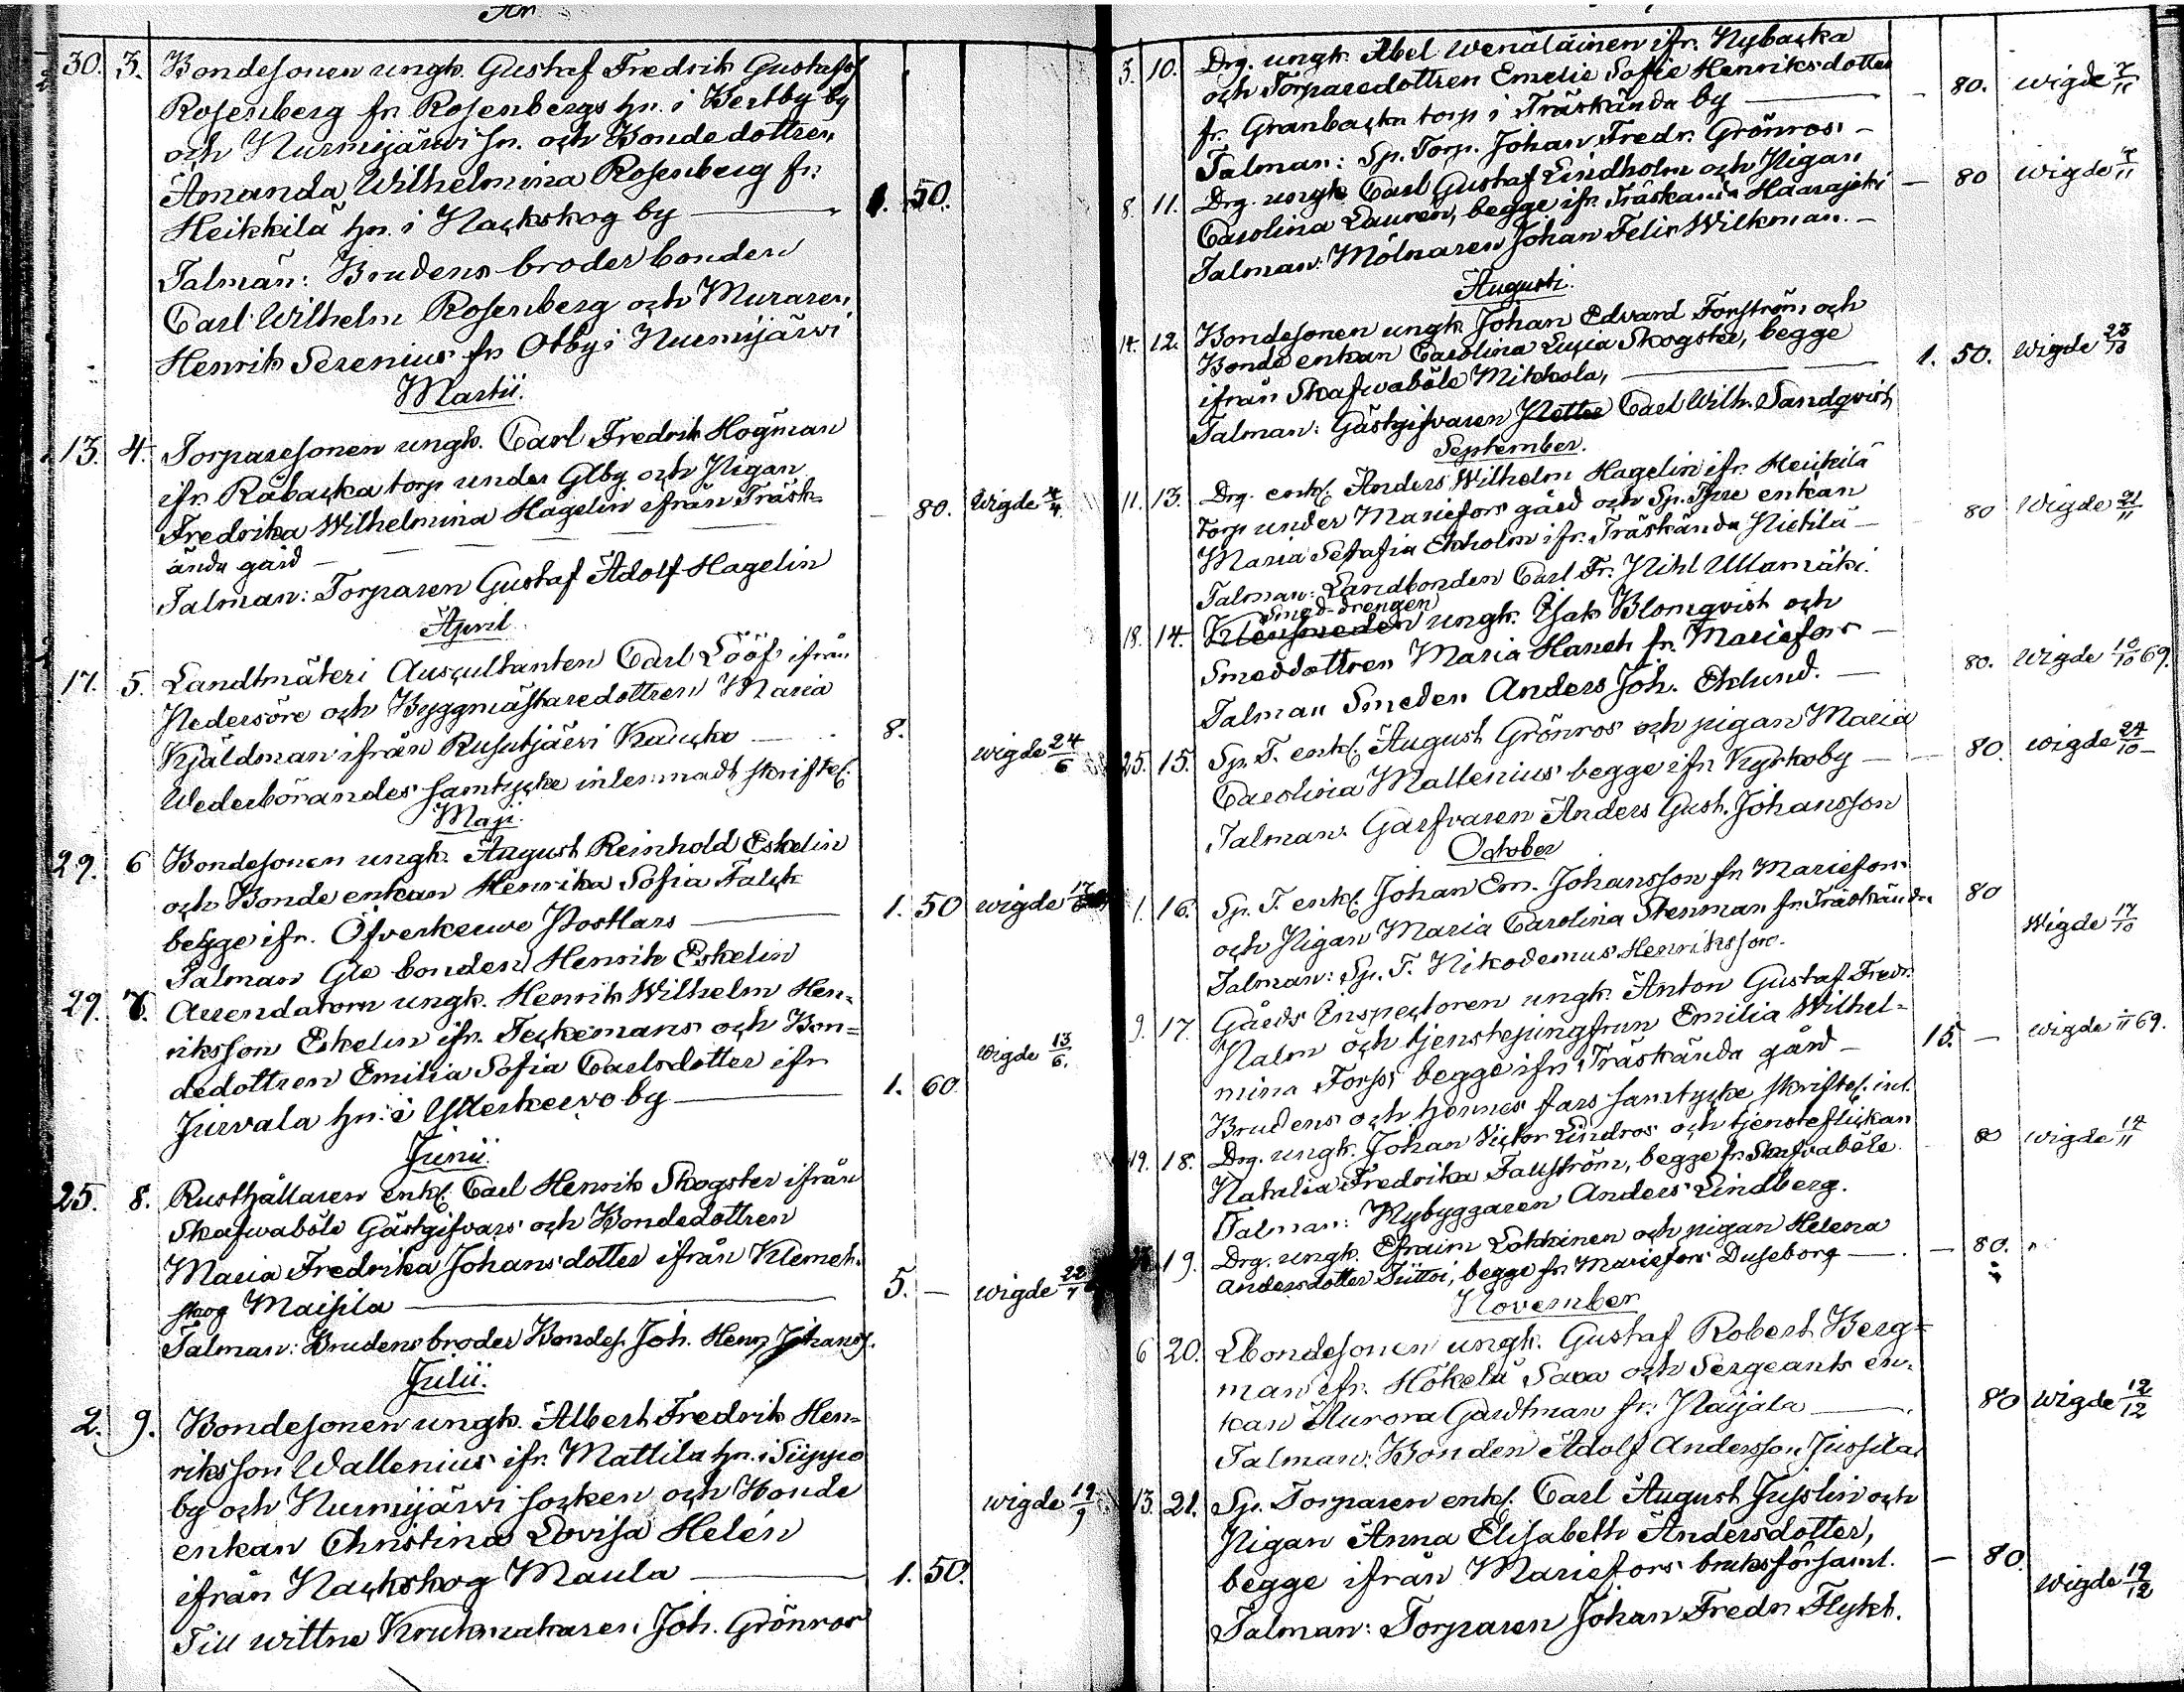 År
30. 3. Bondesonen ungk. Gustaf Fredrik Gustafss
Rosenberg fr. Rosenbergs hn. i Bertby by
och Nurmijärvi sn. och Bondedottren
Amanda Wilhelmina Rosenberg fr.
Heikkilä hn. i Nackskog by — 1. 50.
Talmän: Brudens broder bonden
Carl Wilhelm Rosenberg och Muraren
Henrik Serenius fr. Otby i Nurmijärvi
Martii.
13. 4. Torparesonen ungk. Carl Fredrik Högman
ifr. Råbacka torp under Glby och Pigan
Fredrika Wilhelmina Hagelin ifrån Träsk- — 80. Wigde 4/4
ända gård —
Talman: Torparen Gustaf Adolf Hagelin
April
17. 5. Landtmäteri Auscultanten Carl Lööf ifrån
Nedersöre och Byggmästaredottren Maria
Kjäldman ifrån Rusutjärvi Kaucko — 8. wigde 24/6
Wederbörandes samtycke inlemnadt skriftel.
Maji.
29. 6 Bondesonen ungk. August Reinhold Eskelin
och Bonde enkan Henrika Sofia Falck
begge ifr. Öfverkervo Postlars — 1. 50 wigde
Talman Gle bonden Henrik Eskelin
29. 7. Arrendatorn ungk. Henrik Wilhelm Hen-
riksson Eskelin ifr. Teckemans och Bon=
dedottren Emilia Sofia Carlsdotter ifr wigde 13/6.
Jurvala hn. i Ytterkervo by — 1. 60.
Junii.
25. 8. Rusthållaren enkl. Carl Henrik Skogster ifrån
Skafwaböle Gästgifvars och Bondedottren
Maria Fredrika Johansdotter ifrån Klemet-
skog Maisila — 5. — wigde 22/7
Talman: Brudens broder Bondes. Joh. Henr. Johanss.
Julii.
2. 9. Bondesonen ungk. Albert Fredrik Hen-
riksson Wallenius ifr. Mattila hn. i Siippo
by och Nurmijärvi socken och Bonde wigde 19/9
enkan Christina Lovisa Helén
ifrån Nackskog Maula — 1. 50.
Till wittne Krukmakaren Joh. Grönros
3. 10. Drg. ungk. Abel Wenäläinen ifr. Nybacka
och Torparedottren Emelie Sofie Henriksdotter
fr. Granbacka torp i Träskända by — - 80. wigde 7/11
Talman: Sp. Torp. Johan Fredr. Grönros. -
8. 11. Drg. ungk. Carl Gustaf Lindholm och Pigan
Carolina Lauren, begge ifr. Träskända Haarajoki — 80 wigde 7/11
Talman: Mölnaren Johan Felix Wilkman. -
Augusti.
14. 12. Bondesonen ungk. Johan Edvard Forström och
Bonde enkan Carolina Lucia Skogster, begge
ifrån Skafwaböle Mikkola, — 1. 50. wigde 23/10
Talman: Gästgifvaren Petter Carl Wilh. Sandqvist
September.
11. 13. Drg. enkl. Anders Wilhelm Hagelin ifr. Heikkilä
Torp under Mariefors gård och Sp. Tpre enkan 80 Wigde 21/11
Maria Sefafia Ekholm ifr. Träskända Pietilä —
Talman: Landbonden Carl Fr. Pihl Ullamäki.
Smed-drengen
18. 14. Klensmeden ungk. Isak Blomqvist och
Smeddottren Maria Haneh fr. Mariefors — 80. Wigde 10/10 69.
Talman Smeden Anders Joh. Eklund. —
25. 15. Sp. T. enkl. August Grönros och pigan Maria
Carolina Mallenius begge ifr. Kyrkoby — 80. wigde 24/10 -
Talman: Garfvaren Anders Gust. Johansson
October
1. 16. Sp. T. enkl. Johan Em. Johansson fr. Mariefors 80
och Pigan Maria Carolina Stenman fr. Träskända Wigde 17/10
Talman: Sp. T. Nikodemus Henriksson.
9. 17. Gårds Inspectoren ungk. Anton Gustaf Fredr.
Malm och tjenstejungfrun Emilia Wilhel- 15. — wigde 69.
mina Forss, begge ifr. Träskända gård —
Brudens och hennes fars samtycke skriftel. inl.
19. 18. Drg. ungk. Johan Victor Lindros och tjensteflickan 80 wigde 14/11
Natalia Fredrika Fallström, begge fr. Skafvaböle.
Talman: Nybyggaren Anders Lindberg.
19. Drg. ungk. Efraim Lokkinen och pigan Helena
Andersdotter Tiittoi, begge fr. Mariefors Duseborg — — 80.
November
6 20. Lbondesonen ungk. Gustaf Robert Berg=
man ifr. Hökelä Saxa och Sergeants en-
kan Aurora Gardtman fr. Paijala — 80 Wigde 12/12
Talman: Bonden Adolf Andersson Jussila.
13. 21. Sp. Torparen enkl. Carl August Juslin och
Pigan Anna Elisabeth Andersdotter,
begge ifrån Mariefors bruksförsaml. — 80. wigde 19/12
Talman: Torparen Johan Fredr. Flykt.